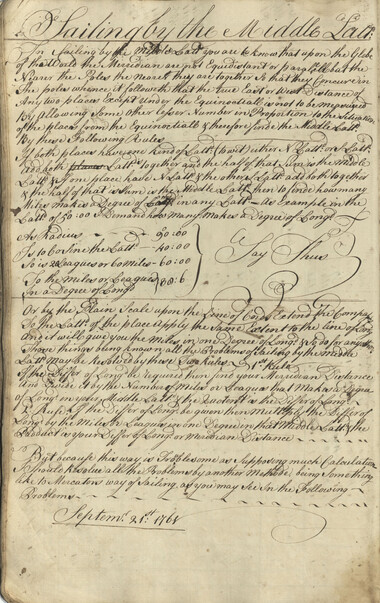 Sailing by the Middle Latt:
In Sailing by the Middle Latt you are to know that upon the Globe
of the Earth the Meridian are not Equidistant or parallell but the
Nearer the Poles the nearer they are together So that they Concur in
The poles whence it followeth that the true East or West Distance of
Any two places Except under the Equinoctiall is not to be measured
By allowing Some other lesser Number in Proportion to the Situation
of the places from the Equinoctiall & therefore finde the Middle Latt
By these Following Rules
If both places have one Kind of Latt (to wit) either N Latt or S Latt
add both Latts together and the half of that Sum is the Middle
Latt & if one place have N Latt & the other S Latt add both together
& the half of that is the Middle Latt then to finde how many
Miles makes a Degree of in any Latt as Example in the
Latt of 50:00 I Demand how many Makes a Degree of Longd
As Radius 90:00
Is to Cosine the Latt 40:00
So is 20 Leagues or 60 Miles 60:00
So the Miles or Leagues
In a Degree of Longd
Say Thus
Or by the Plain Scale upon the Line of Cords Extend the Compass
To the Latt of the place Apply the Same Extent to the line of Long
And it will give you the Miles in one Degree of Longd & so do for any other
Those things being known all the Problems of Sailing by the middle
Latt May be resolved by those Two Rules 1st Rule
If the Differ of Long be required then find your Meridian Distance
And Divide it by the Number of Miles or Leagues that Makes a Degree
of Long in your Middle Latt & the Quotient is the Differ of Long
2 Rule If the Differ of Long be given then Multiply the Differ of
Long by the Miles or Leagues in one Degree in that Middle Latt the
Product is your Differ of Long or Meridian Distance
But because this way is Troblesome as Supposing much Calculation
I Should Resolve all the Problems by another Methode being Something
like to Mercators way of Sailing as you may See In the Following
Problems
Septemr 21st 1761